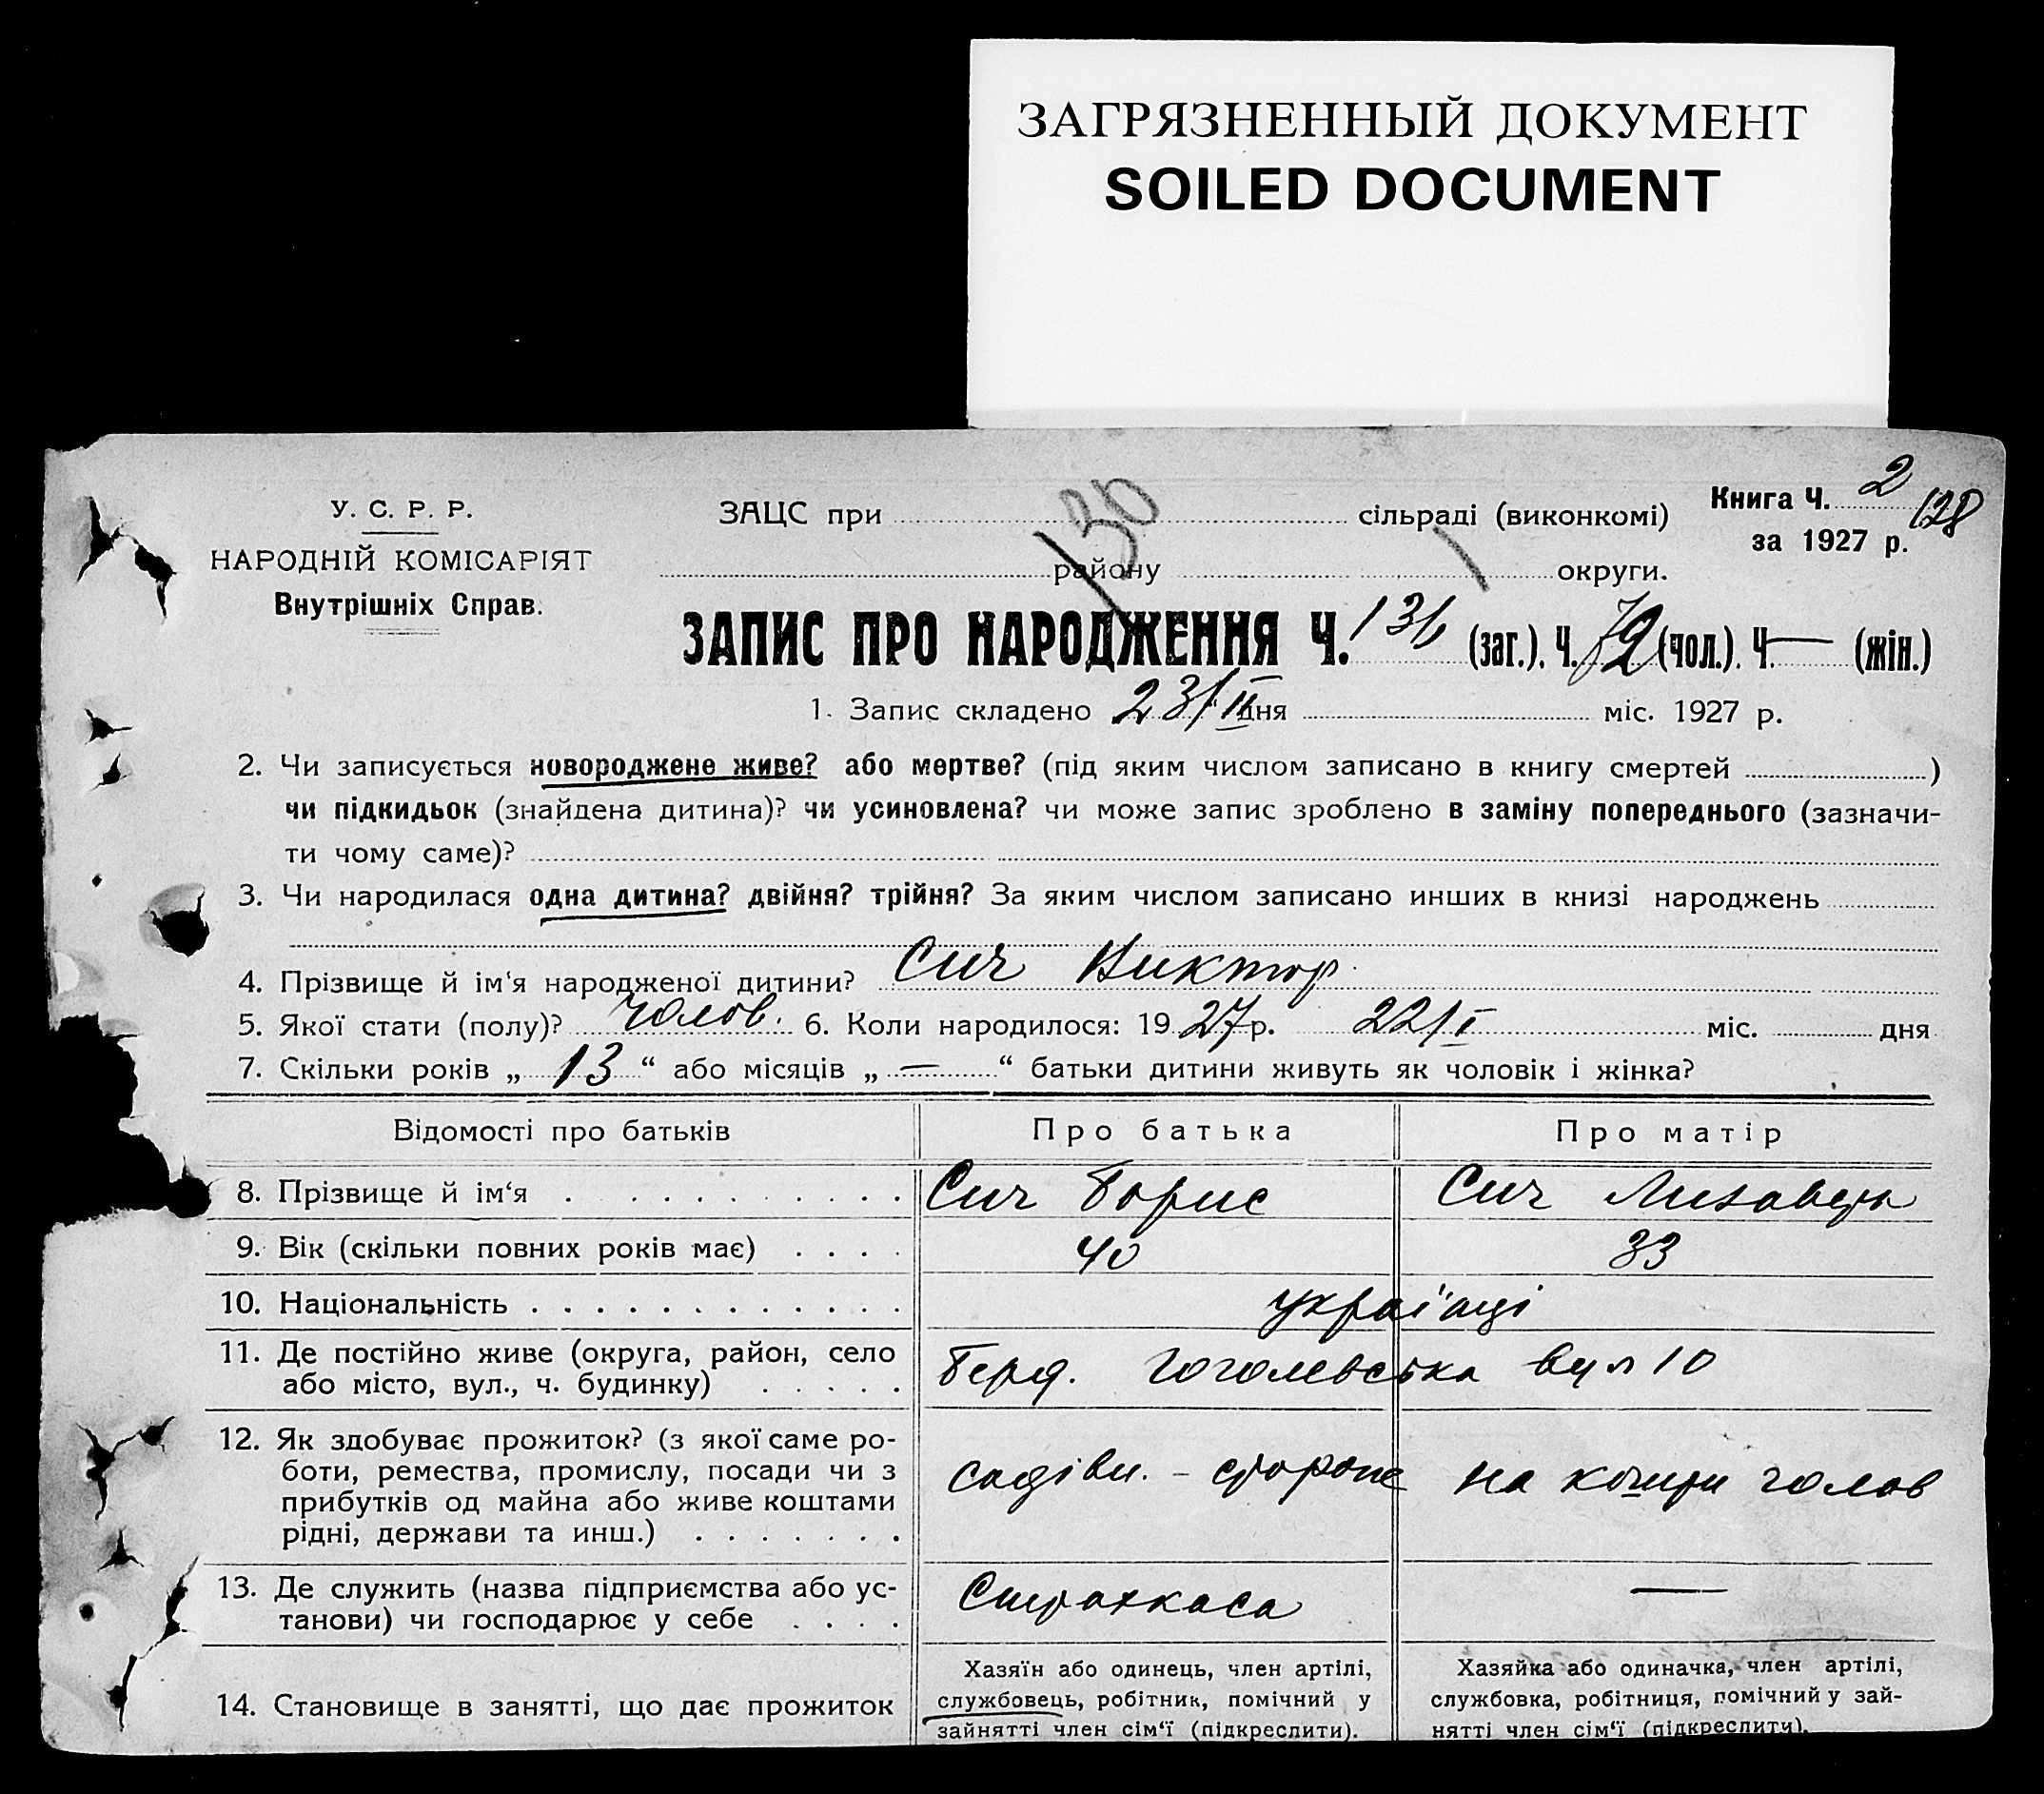 ЗАГРЯЗНЕННЫЙ ДОКУМЕНТ
SOILED DOCUMENT
У. С. Р. Р.
НАРОДНІЙ КОМІСАРІЯТ
Внутрішніх Справ.
130
ЗАЦС при сільраді (виконкомі)
району округи.
Книга Ч. 2
128
за 1927 р.
ЗАПИС ПРО НАРОДЖЕННЯ Ч. 136 (заг.). Ч. 72 (чол.). Ч. — (жін.)
1. Запис складено 23/II дня міс. 1927 р.
2. Чи записується новороджене живе? або мертве? (під яким числом записано в книгу смертей )
чи підкидьок (знайдена дитина)? чи усиновлена? чи може запис зроблено в заміну попереднього (зазначи-
ти чому саме)?
3. Чи народилася одна дитина? двійня? трійня? За яким числом записано инших в книзі народжень
4. Прізвище й ім‘я народженої дитини? Сич Виктор
5. Якої стати (полу)? чолов. 6. Коли народилося: 1927 р. 22/I міс. дня
7. Скільки років „ 13 “ або місяців „ — “ батьки дитини живуть як чоловік і жінка?
Відомості про батьків Про батька Про матір
8. Прізвище й ім‘я Сич Борис Сич Лизавета
9. Вік (скільки повних років має) 40 33
10. Національність українці
11. Де постійно живе (округа, район, село
або місто, вул., ч. будинку)
Берд. Гоголевська вул 10
12. Як здобуває прожиток? (з якої саме ро-
боти, ремества, промислу, посади чи з
прибутків од майна або живе коштами
рідні, держави та инш.)
на кошти чолов
13. Де служить (назва підприємства або ус-
танови) чи господарює у себе
Страхкаса —
14. Становище в занятті, що дає прожиток
Хазяїн або одинець, член артілі,
службовець, робітник, помічний у
зайнятті член сім‘ї (підкреслити).
Хазяйка або одиначка, член артілі,
службовка, робітниця, помічний у зай-
нятті член сім‘ї (підкреслити).